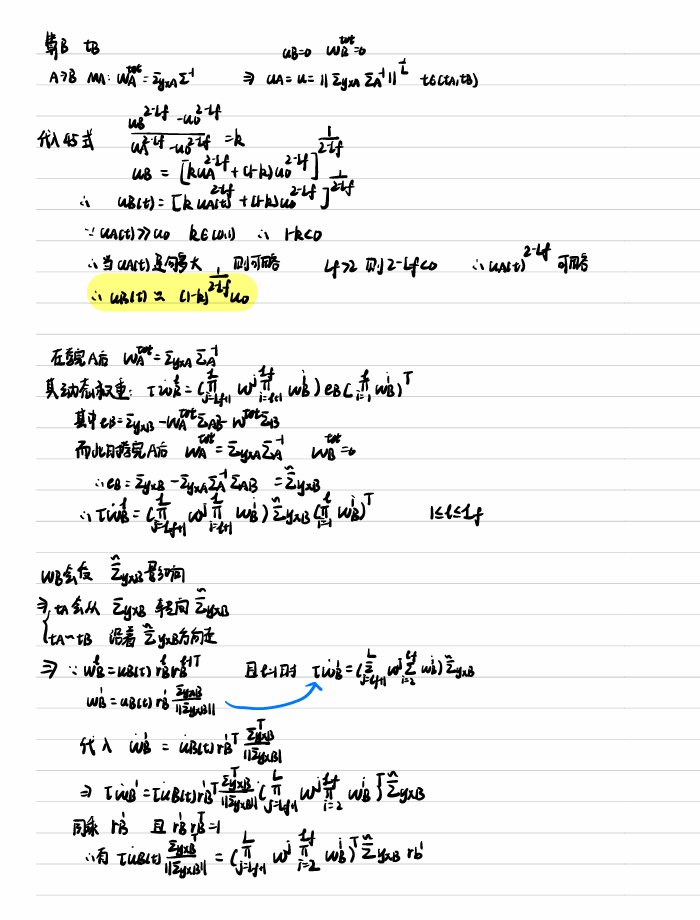 算B tB uB=0 WB^tot=0
A→B 时A: WA^tot = ΣyxA Σ^-1 ⇒ uA=u=||ΣyxA ΣA^-1||^(1/L) t∈(tA,tB)
代入45式 (uB^(2-Lf) - u0^(2-Lf)) / (uA^(2-Lf) - u0^(2-Lf)) = k
uB = [kuA^(2-Lf) + (1-k)u0^(2-Lf)]^(1/(2-Lf))
∴ uB(t) = [k uA(t)^(2-Lf) + (1-k)u0^(2-Lf)]^(1/(2-Lf))
∵ uA(t)≫u0 k∈(0,1) ∴ 1-k<0
∴当uA(t)足够大 则可略 Lf>2 则2-Lf<0 ∴ uA(t)^(2-Lf) 可略
∴ uB(t) ≃ (1-k)^(1/(2-Lf)) u0
在学完A后 WA^tot = ΣyxA ΣA^-1
其动态权重: τẇB^l = (∏_{j=Lf+1}^L W^j ∏_{i=l+1}^Lf WB^i) eB (∏_{i=1}^l WB^i)^T
其中eB = ΣyxB - WA^tot ΣAB - W^tot ΣB
而此时学完A后 WA^tot = ΣyxA ΣA^-1 WB^tot=0
∴ eB = ΣyxB - ΣyxA ΣA^-1 ΣAB = Σ̃yxB
∴ τẇB^l = (∏_{j=Lf+1}^L W^j ∏_{i=l+1}^Lf WB^i) Σ̃yxB (∏_{i=1}^l WB^i)^T 1≤l≤Lf
WB会受 Σ̃yxB影响
⇒ tA会从 ΣyxB 转向 Σ̃yxB
tA~tB 沿着 Σ̃yxB方向走
⇒ ∵ WB^l = uB(t) rB^l rB^(l-1)T 且l=1时 τẇB^1 = (∑_{j=Lf+1}^L W^j ∑_{i=2}^Lf WB^i) Σ̃yxB
WB^1 = uB(t) rB^1 ΣyxB/||ΣyxB||
代入 ẇB^1 = u̇B(t) rB^1T ΣyxB^T/||ΣyxB||
⇒ τẇB^1 = τu̇B(t) rB^1T ΣyxB^T/||ΣyxB|| (∏_{j=Lf+1}^L W^j ∏_{i=2}^Lf WB^i)^T Σ̃yxB
同乘 rB^1 且 rB^1 rB^1T=1
∴有 τu̇B(t) ΣyxB^T/||ΣyxB|| = (∏_{j=Lf+1}^L W^j ∏_{i=2}^Lf WB^i)^T Σ̃yxB rb^1